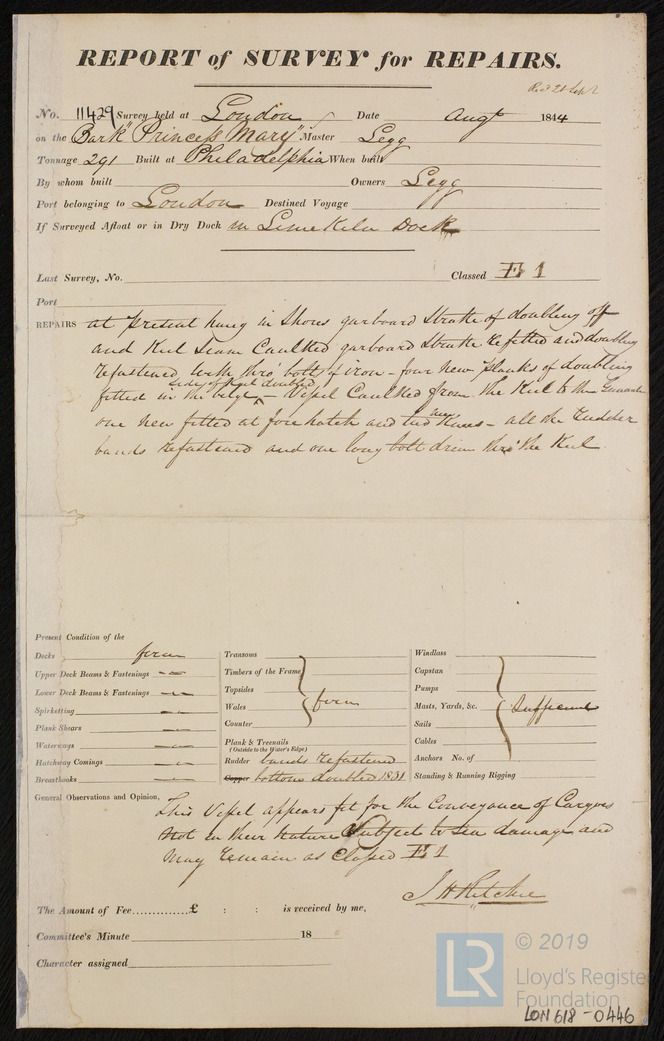 REPORT of SURVEY for REPAIRS.
Recd 21 Sept
No. 11429 Survey held at London Date Augt 1844
on the Bark "Princess Mary" Master Legg
Tonnage 291 Built at Philadelphia When built
By whom built Owners Legg
Port belonging to London Destined Voyage
If Surveyed Afloat or in Dry Dock in Lime Kiln Dock
Last Survey, No. Classed Æ 1
Port
REPAIRS at present hung in Shores garboard Strake of doubling off
and Keel Seam Caulked garboard Strake refitted and doubling
refastened with thro' bolts of iron - four new planks of doubling
side of Keel doubled
fitted in the bilge - Vessel Caulked from the Keel to the
one new fitted at fore hatch and two new Knees - all the Rudder
bands refastened and one long bolt driven thro' the Keel
Present Condition of the
Decks firm
Upper Deck Beams & Fastenings -〃-
Lower Deck Beams & Fastenings -〃-
Spirketting -〃-
Plank Shears -〃-
Waterways -〃-
Hatchway Comings -〃-
Breasthooks -〃-
Transoms
Timbers of the Frame
Topsides
Wales firm
Counter
Plank & Treenails
(Outside to the Water's Edge)
Rudder bands refastened
Copper bottom doubled 1831
Windlass
Capstan
Pumps
Masts, Yards, &c. Sufficient
Sails
Cables
Anchors No. of
Standing & Running Rigging
General Observations and Opinion,
This Vessel appears fit for the Conveyance of Cargoes
Not in their Nature Subject to Sea damage and
May remain as Classed Æ 1
J H Ritchie
The Amount of Fee..............£ : : is received by me,
Committee's Minute 18
Character assigned
LR © 2019
Lloyd's Register
Foundation
LON 618 - 0446